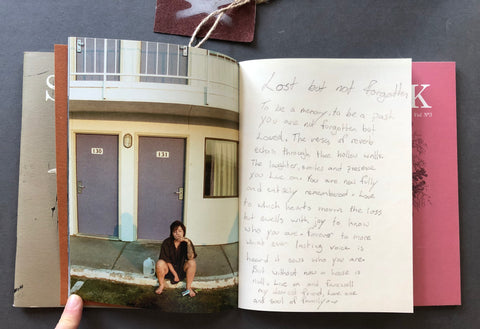 S
K
Vol N°3
130
131
Lost but not forgotten
To be a memory, to be a past
You are not forgotten but
Loved. The verses of reverb
echos through the hollow walls
The laughter, smiles and presense
you live on. You are now fully
and entirely remembered. Love
to which hearts mourns the loss
but swells with joy to know
who you are. Forever to more
what ever lasting voice is
heard it sows who you are.
But without new a house is
Live on and farewell
my dearest friend, love one
and soul of family